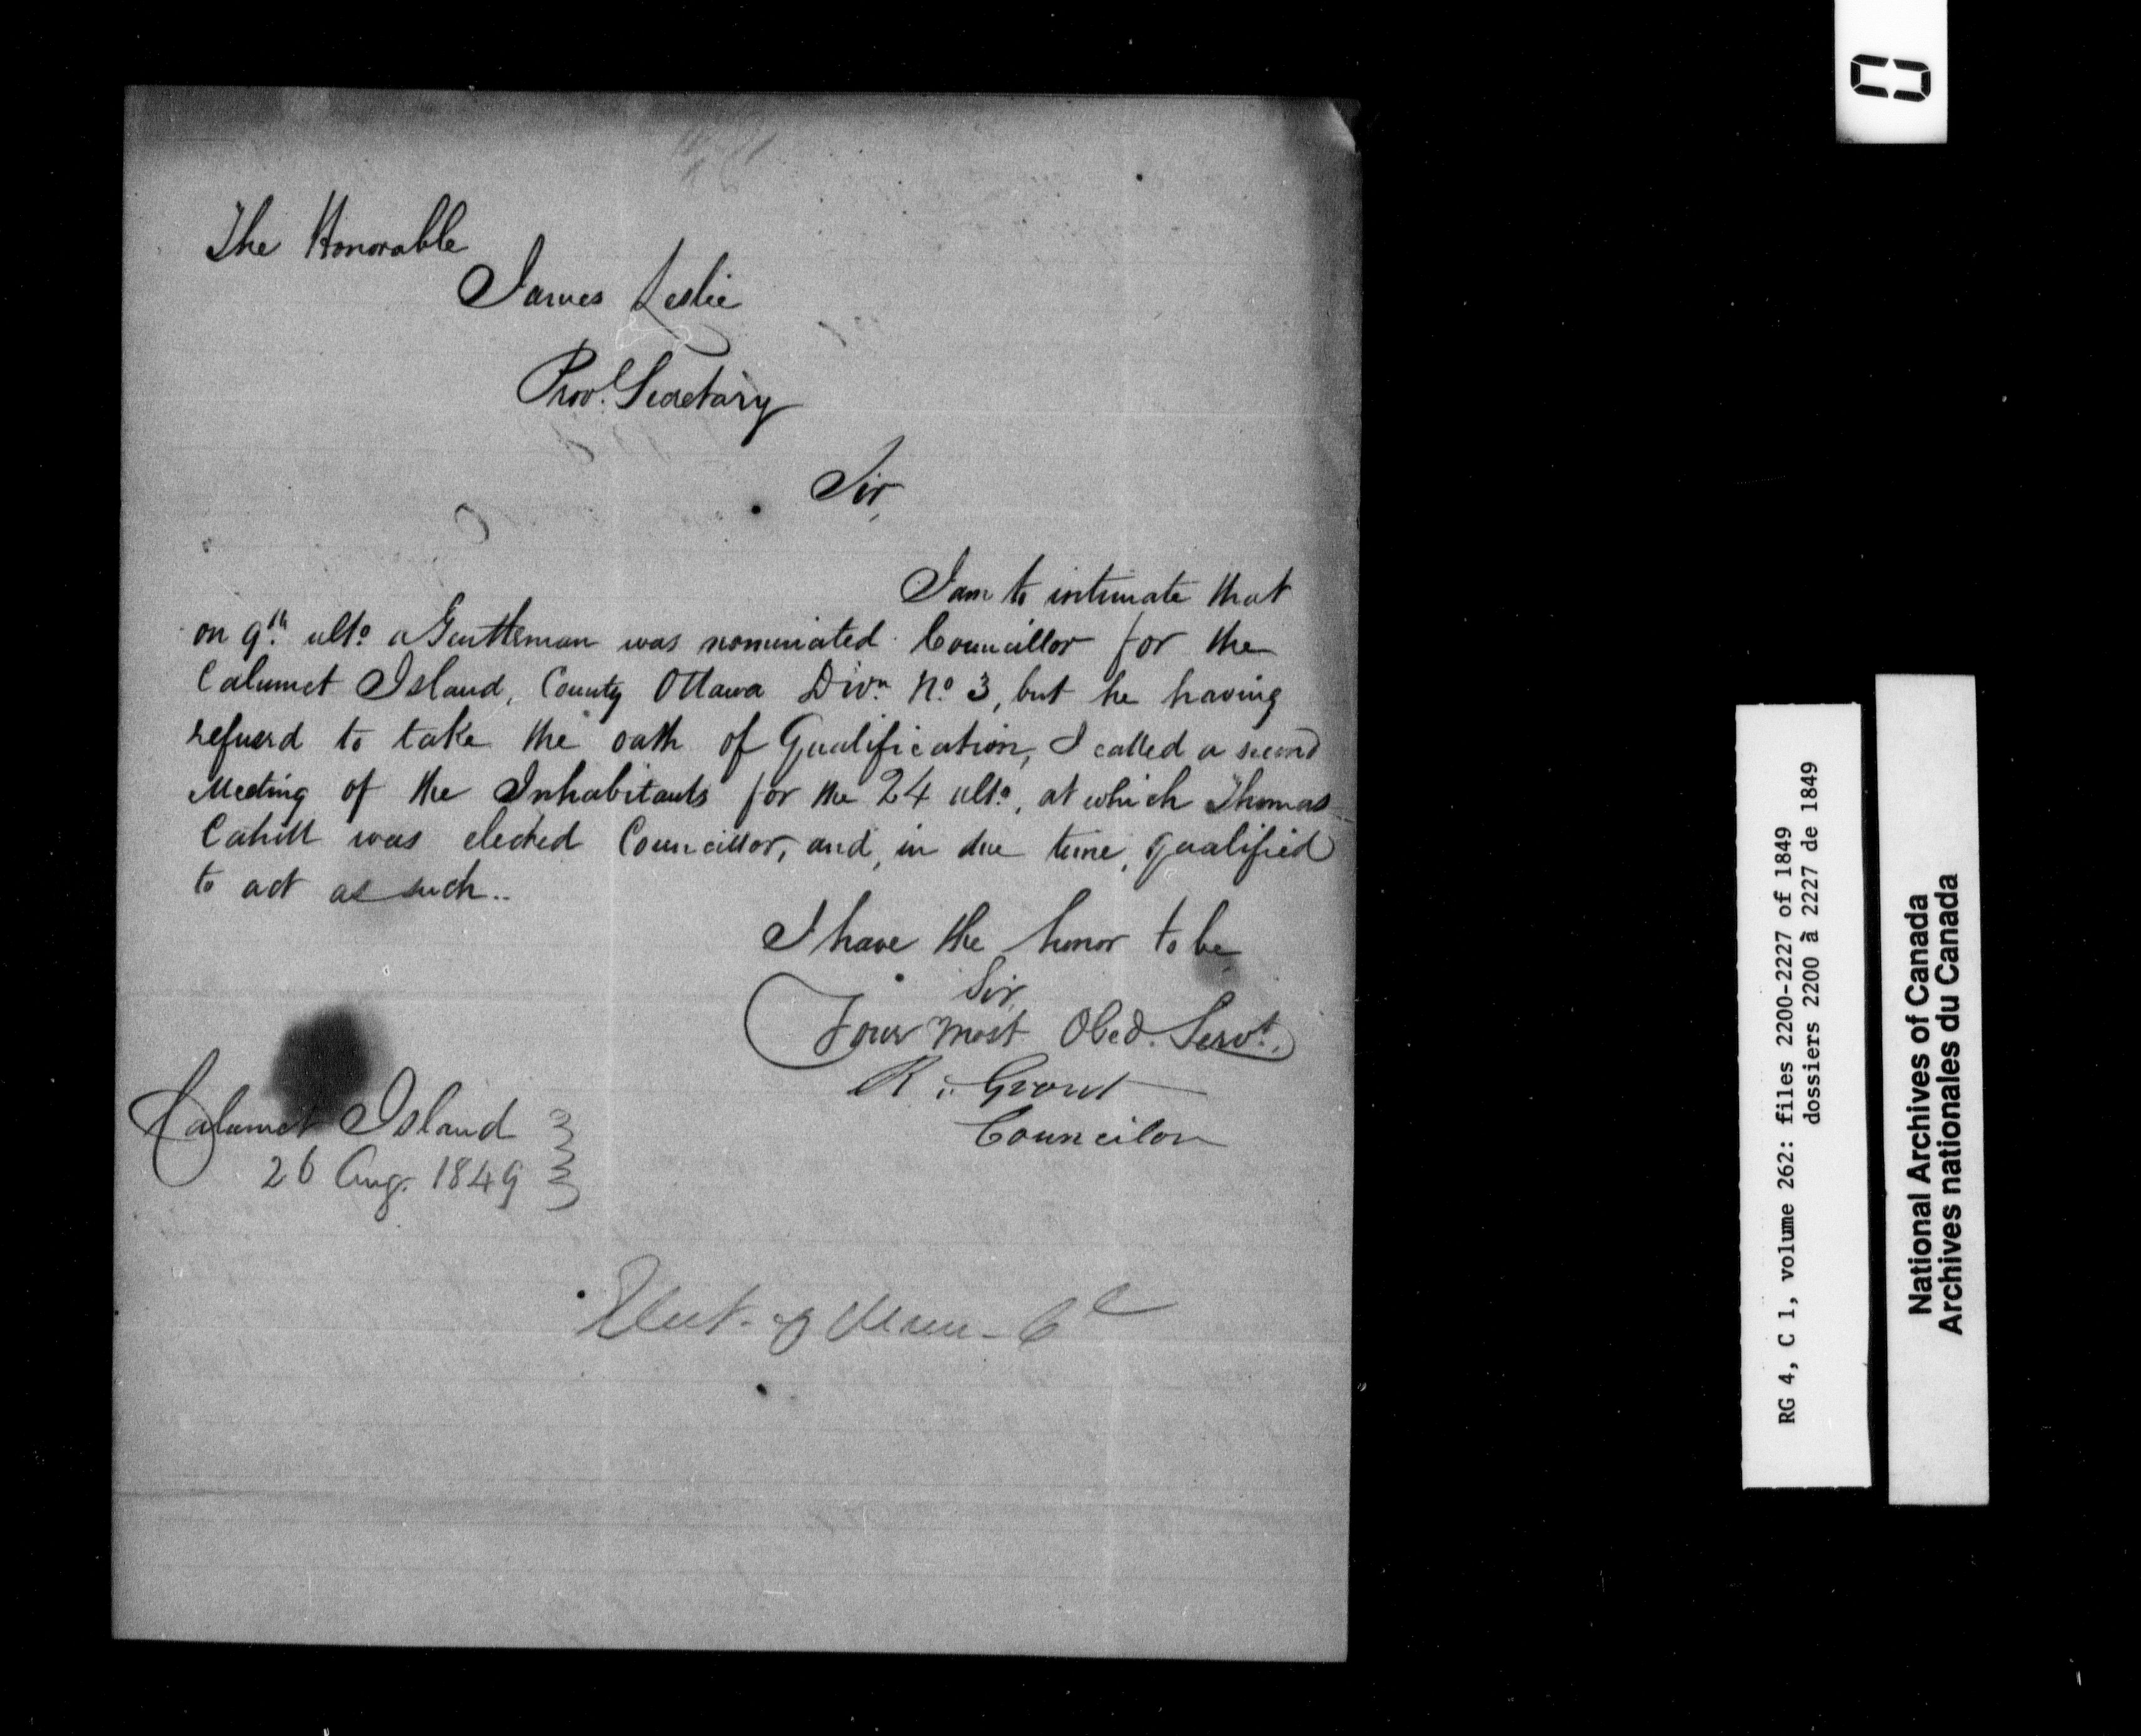 The Honorable
James Leslie
Provl. Secretary
Sir,
I am to intimate that
on 9th. ulto. a Gentleman was nominated Councillor for the
Calumet Island, County Ottawa Divn. No. 3, but he having
refused to take the oath of Qualification, I called a second
Meeting of the Inhabitants for the 24 ulto., at which Thomas
Cahill was elected Councillor, and, in due time, qualified
to act as such..
I have the honor to be
Sir,
Your most Obed. Servt.
R. Grant
Councilor
Calumet Island
26 Aug. 1849
Elect. of Mun. Cl
RG 4, C 1, volume 262: files 2200-2227 of 1849
dossiers 2200 à 2227 de 1849
National Archives of Canada
Archives nationales du Canada